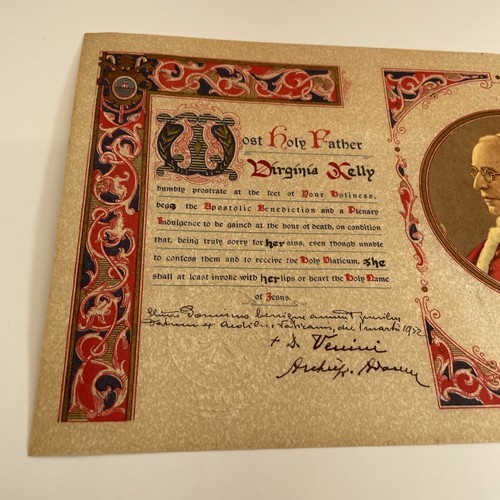 Most Holy Father
Virginia Kelly
humbly prostrate at the feet of Your Holiness,
begs the Apostolic Benediction and a Plenary
Indulgence to be gained at the hour of death, on condition
that, being truly sorry for her sins, even though unable
to confess them and to receive the Holy Viaticum, She
shall at least invoke with her lips or heart the Holy Name
of Jesus.
benigne annuit
ex Aedibus Vaticanis, die 1 1952
+ D. Venini